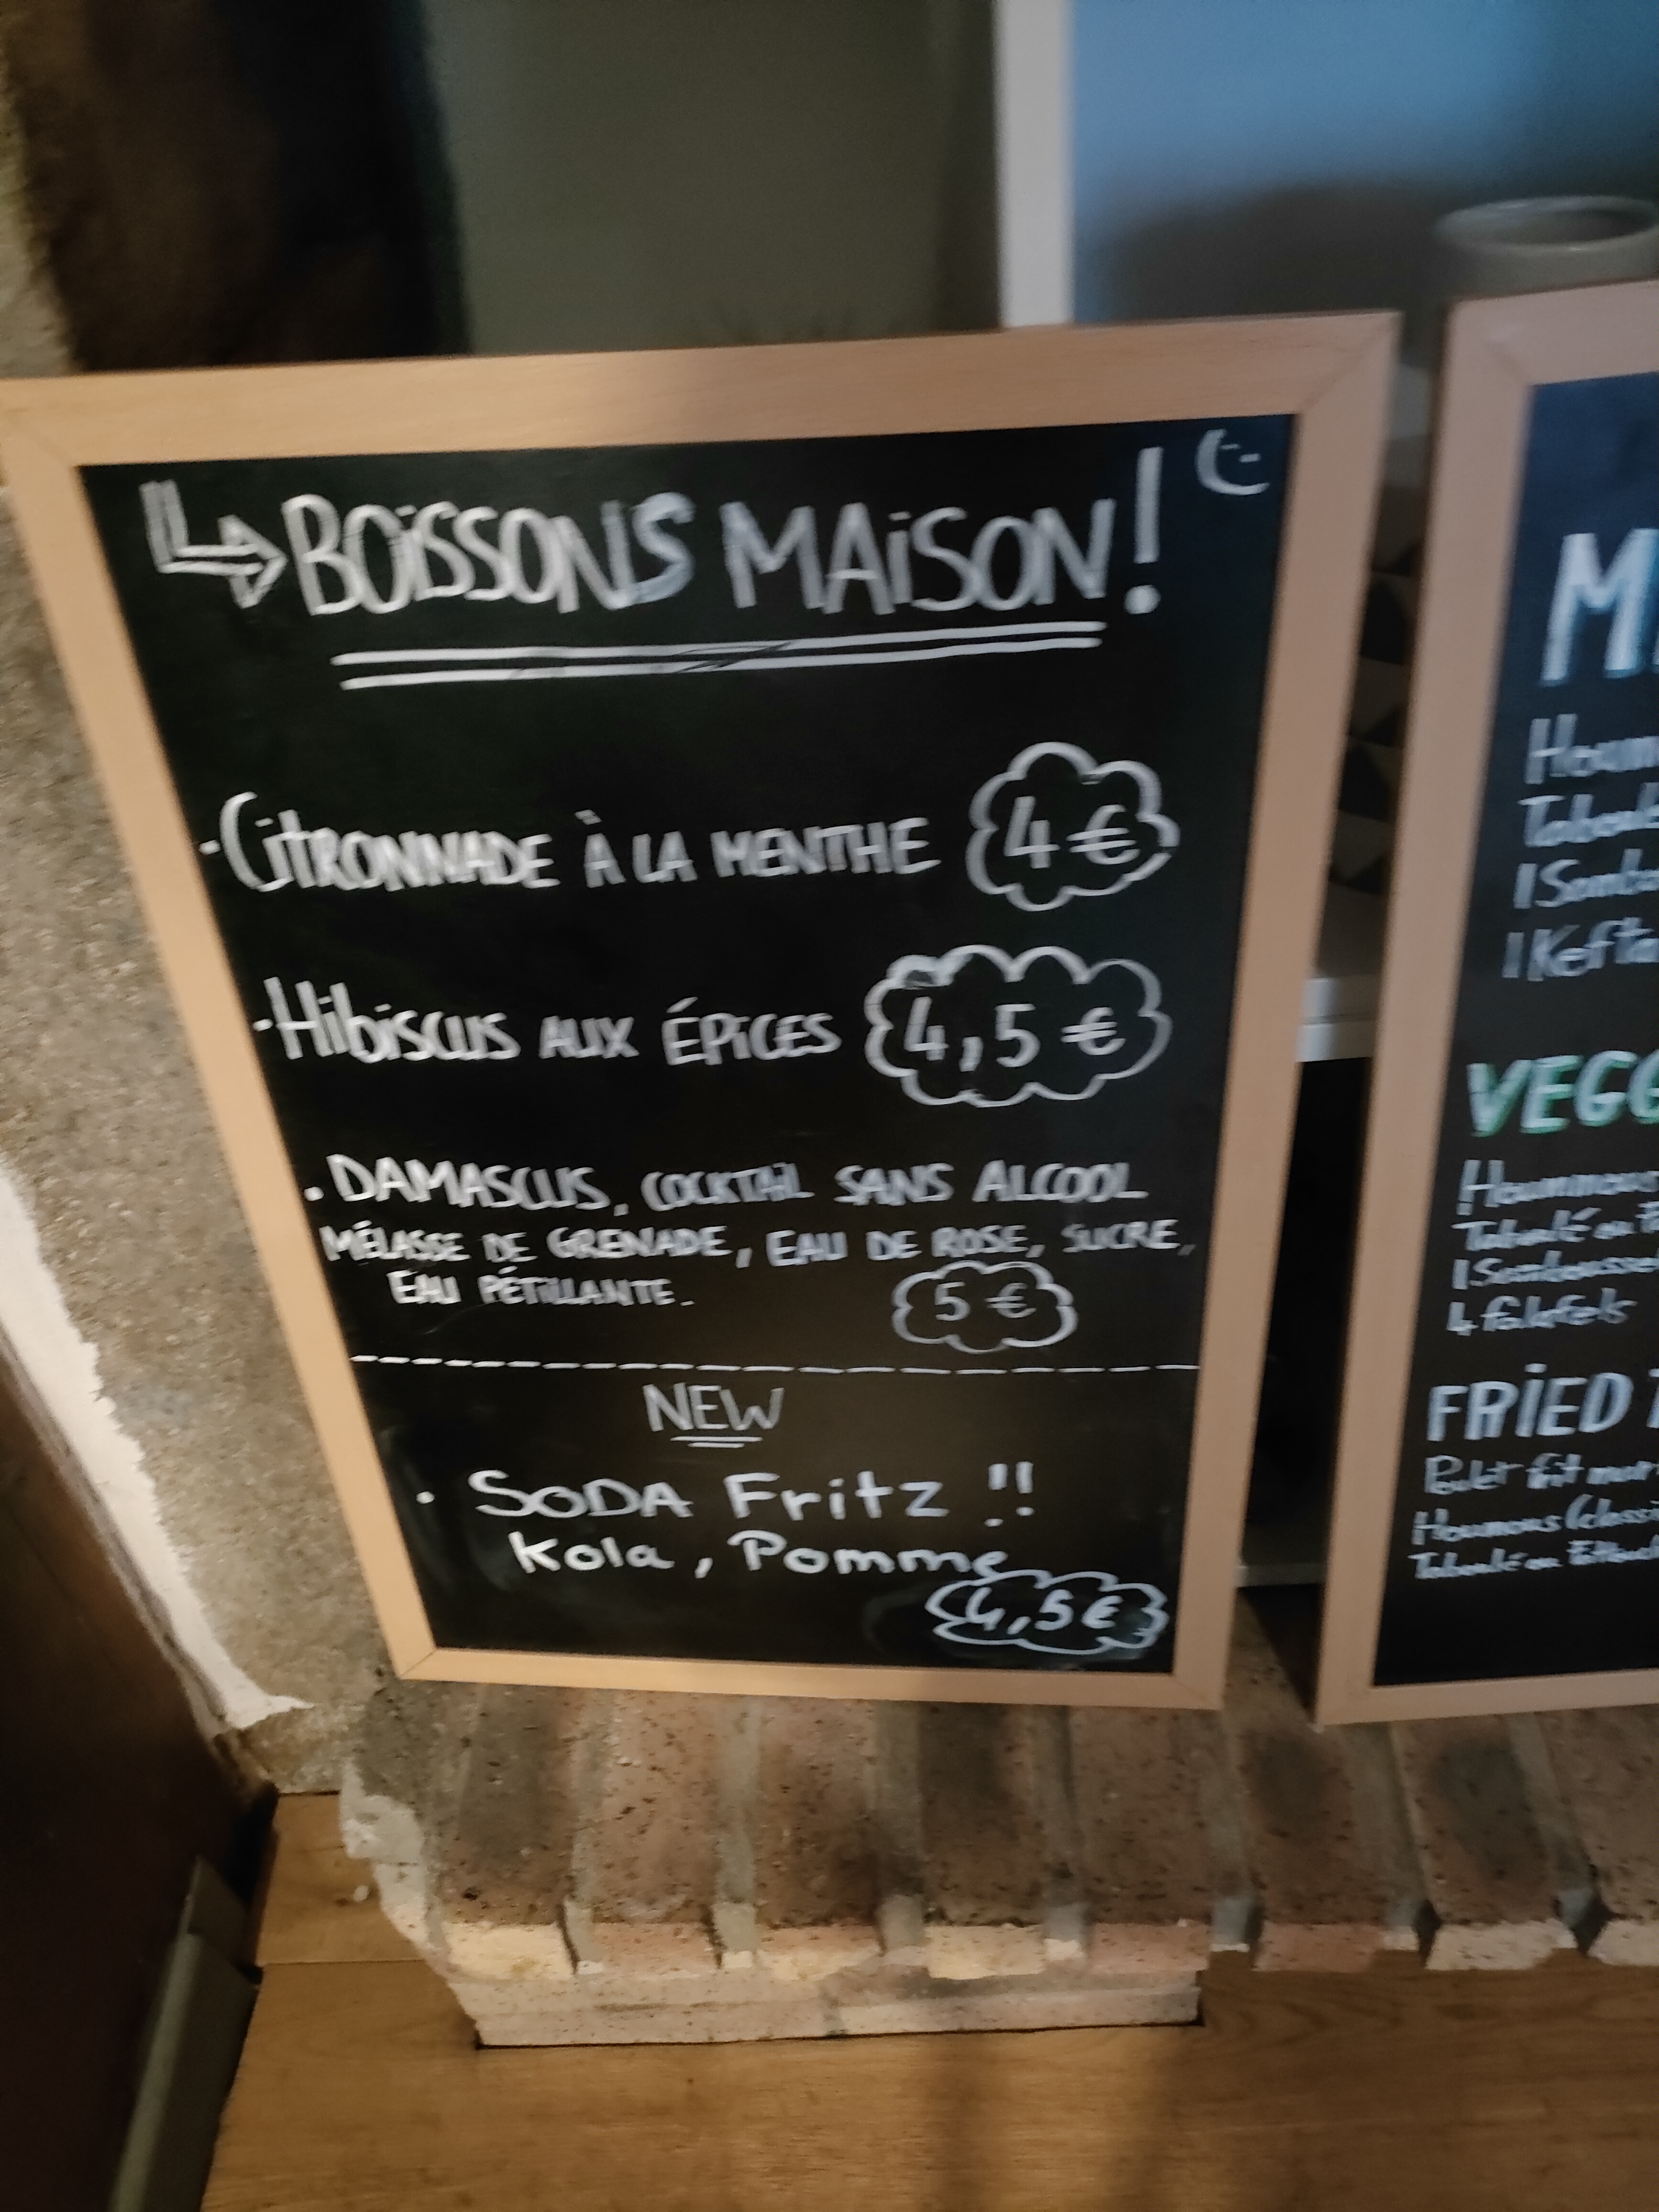 BOISSONS MAISON !
· CITRONNADE À LA MENTHE 4 €
· Hibiscus AUX ÉPICES 4,5 €
. DAMASCUS, COCKTAIL SANS ALCOOL
MÉLASSE DE GRENADE, EAU DE ROSE, SUCRE,
EAU PÉTILLANTE.
5 €
NEW
· SODA Fritz !!
Kola, Pomme
4,5 €
1 Kefta
VEGG
Hoummous
Taboulé ou
4 falafels
FRIED
Poulet frit
Houmous
Taboulé ou